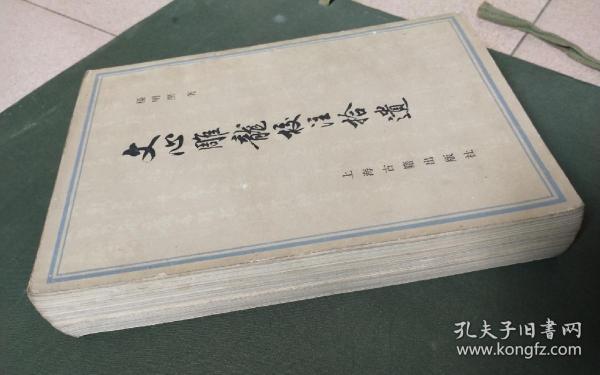 楊明照 著
文心雕龍校注拾遺
上海古籍出版社
孔夫子旧书网
www.kongfz.com